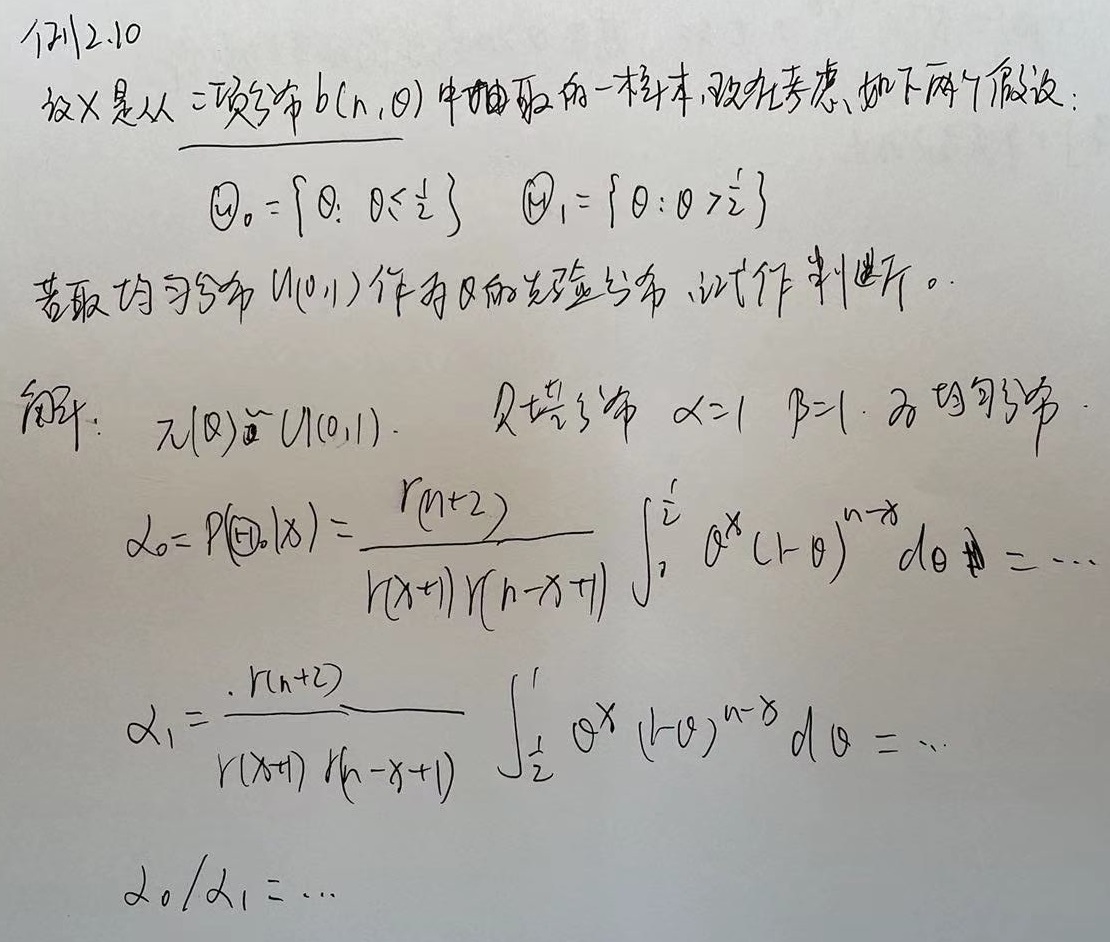 例2.10
设X是从二项分布b(n,θ)中抽取的一样本,现在考虑如下两个假设:
Θ₀={θ: θ≤1/2} Θ₁={θ:θ>1/2}
若取均匀分布U(0,1)作为θ的先验分布,试作判断。
解: π(θ)~U(0,1). 贝塔分布 α=1 β=1. 为均匀分布.
α₀=P(Θ₀|x)= Γ(n+2)/(Γ(x+1)Γ(n-x+1)) ∫₀^(1/2) θ^x(1-θ)^(n-x)dθ =…
α₁= Γ(n+2)/(Γ(x+1)Γ(n-x+1)) ∫_(1/2)^1 θ^x(1-θ)^(n-x)dθ =…
α₀/α₁=…